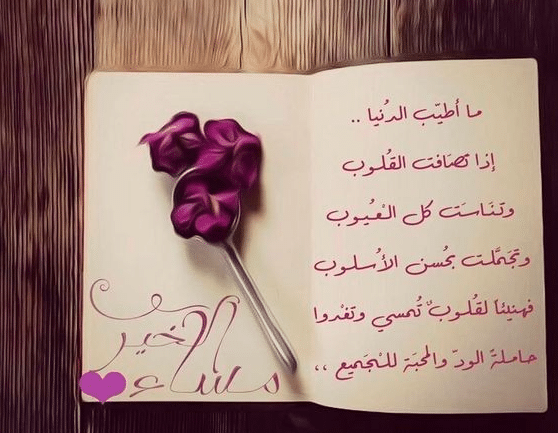 ما أطيَب الدُنيا ..
إذا تصَافت القُلوب
وتَناسَت كل العُيوب
وتَجَمَّلت بحُسن الأُسلوب
فهنيئاً لقُلوبٌ تُمسي وتغْدوا
حاملةً الودّ والمحبَة للجَميع ،،
مساء الخير